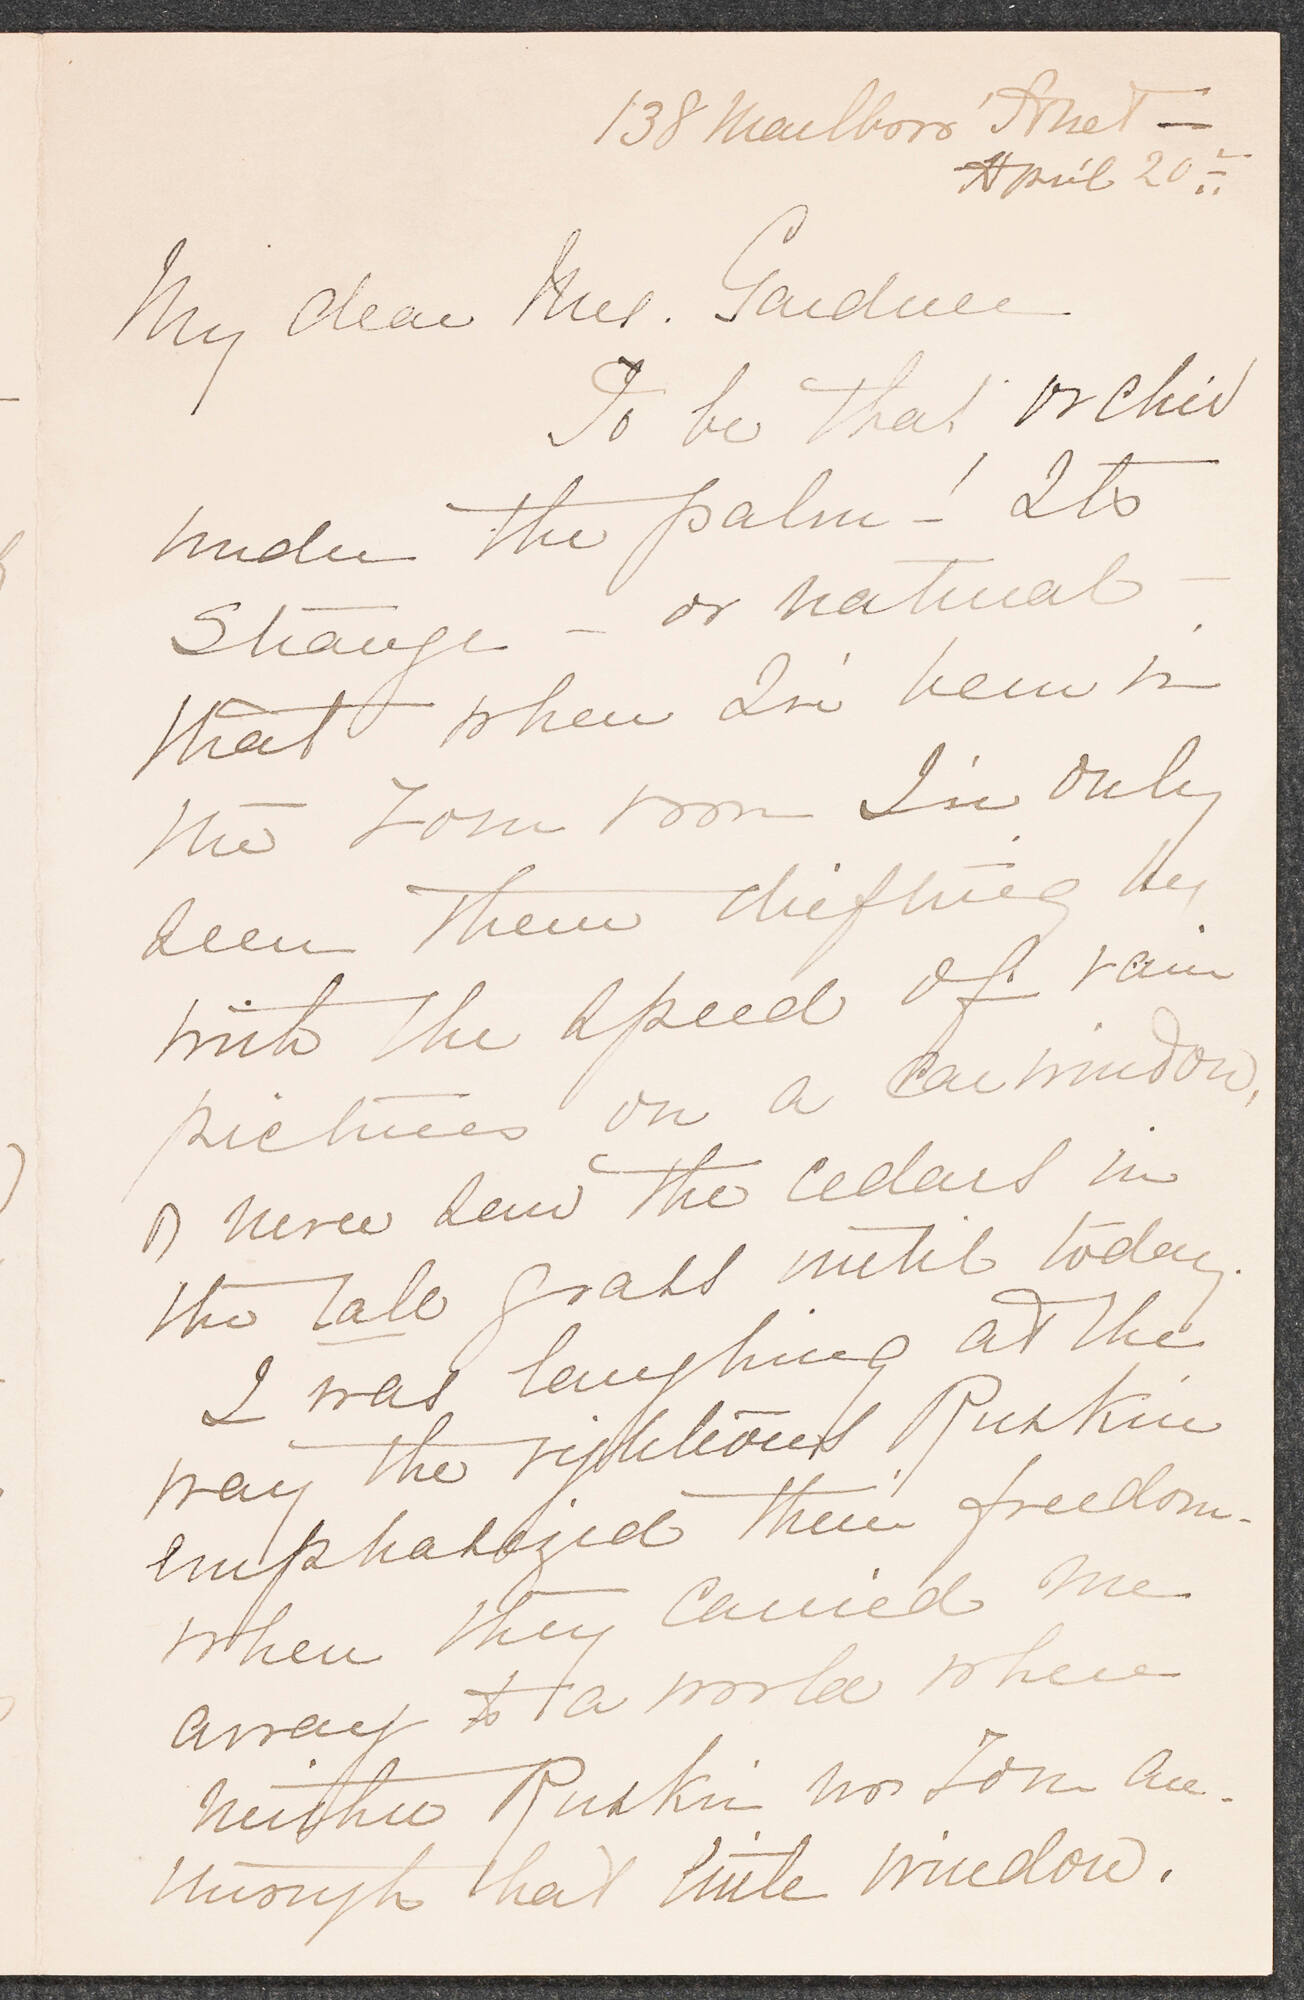 138 Marlboro' Street —
April 20th
My dear Mrs. Gardner
To be that orchid
under the palm —! Its
strange — or natural —
that when I've been in
the Zorn room I've only
seen them drifting by
with the speed of rain
pictures on a car window.
I never saw the cedars in
the tall grass until today.
I was laughing at the
way the righteous Ruskin
emphasized their freedom —
when they carried me
away to a world where
neither Ruskin nor Zorn are —
through that little window.